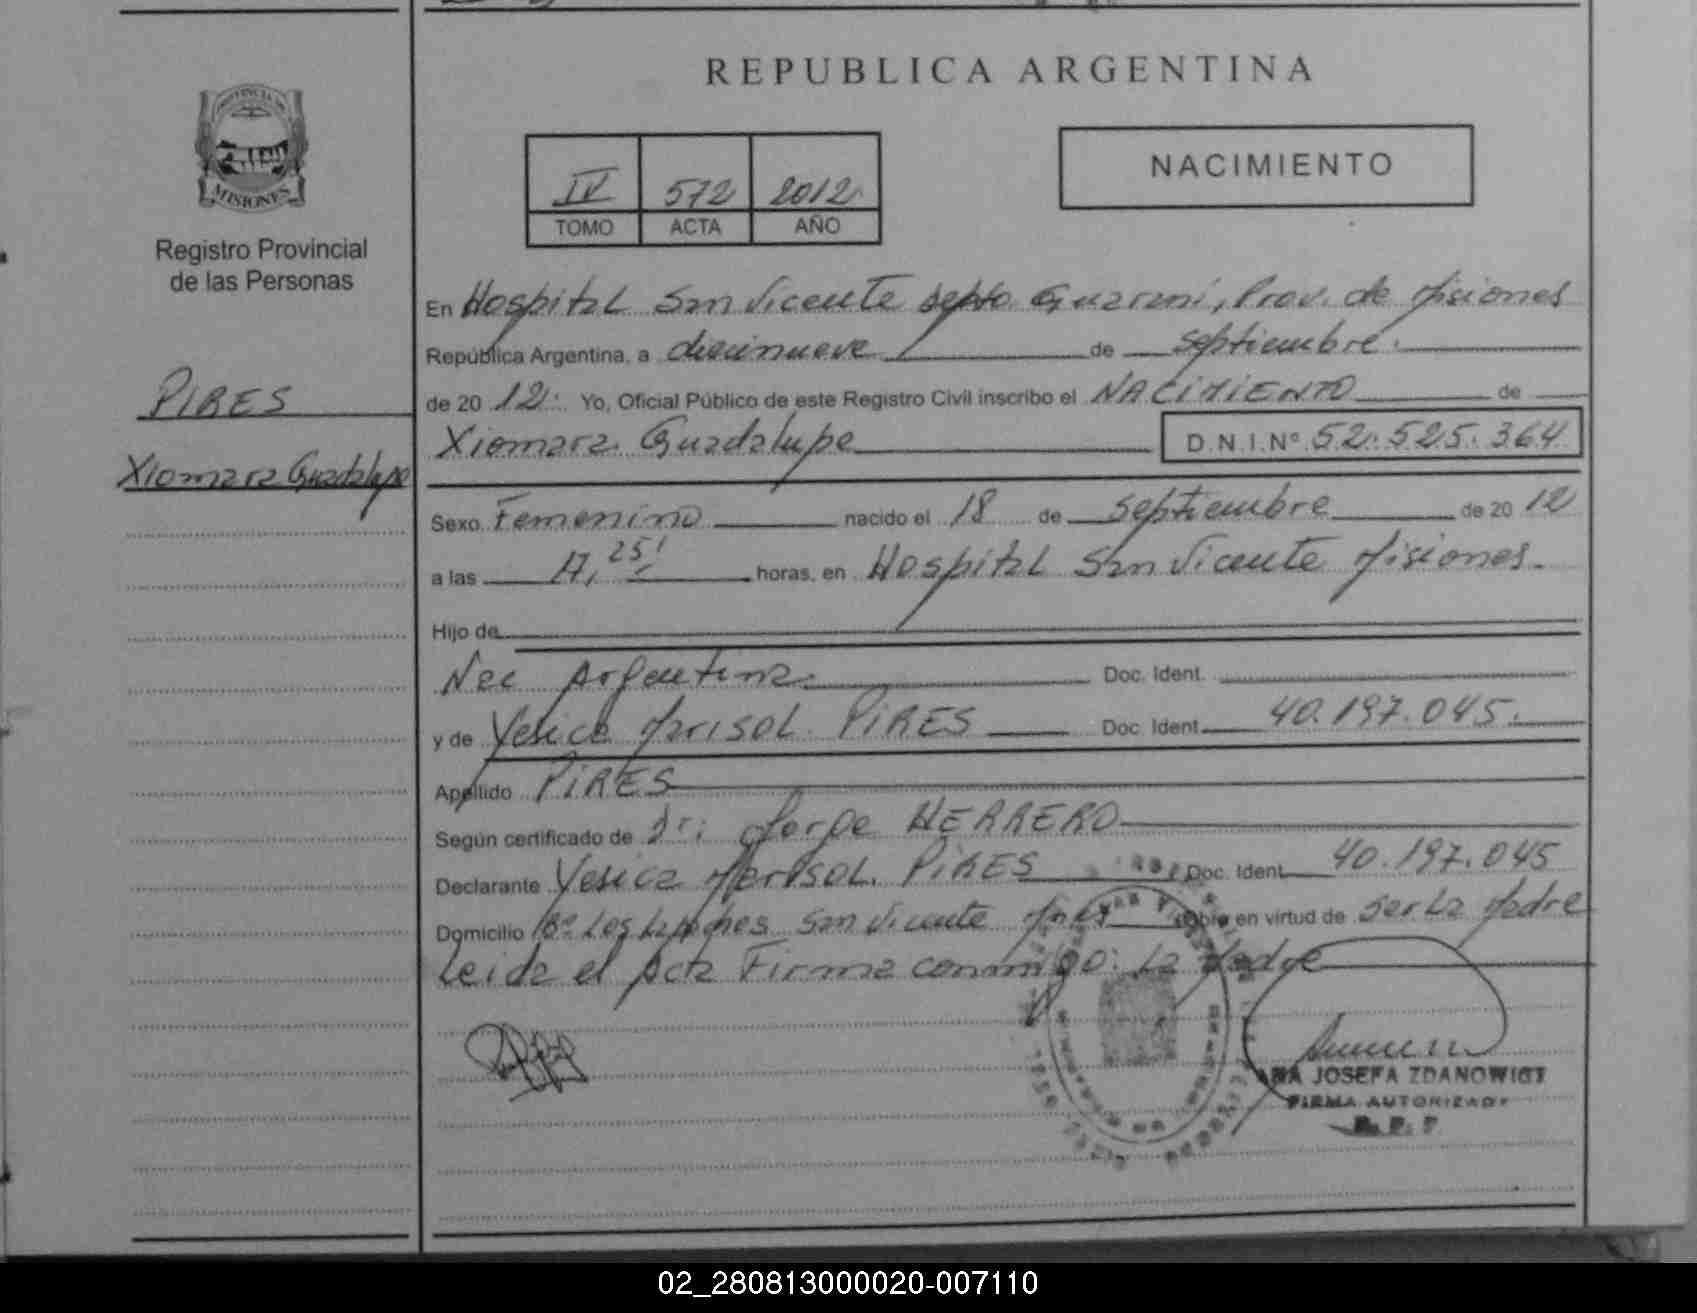 REPUBLICA ARGENTINA
PROVINCIA DE
MISIONES
Registro Provincial
de las Personas
IV 572 2012
TOMO ACTA AÑO
NACIMIENTO
PIRES
Xiomara Guadalupe
En Hospital San Vicente Depto Guarani, Prov. de Misiones
República Argentina, a diecinueve de septiembre.
de 20 12. Yo, Oficial Público de este Registro Civil inscribo el NACIMIENTO de
Xiomara Guadalupe D.N.I.Nº 52.525.364
Sexo Femenino nacido el 18 de septiembre de 20 12
a las 17,25' horas, en Hospital San Vicente Misiones.
Hijo de
Nac Argentina. Doc. Ident.
y de Yesica Marisol PIRES Doc. Ident. 40.197.045.
Apellido PIRES
Según certificado de Dr: Jorge HERRERO
Declarante Yesica Marisol PIRES Doc. Ident. 40.197.045
Domicilio Bº Los San Vicente Mnes Obra en virtud de ser La Madre
Leida el Acta Firma conmigo: La Madre
ANA JOSEFA ZDANOWICZ
FIRMA AUTORIZADA
R. P. P.
02_280813000020-007110